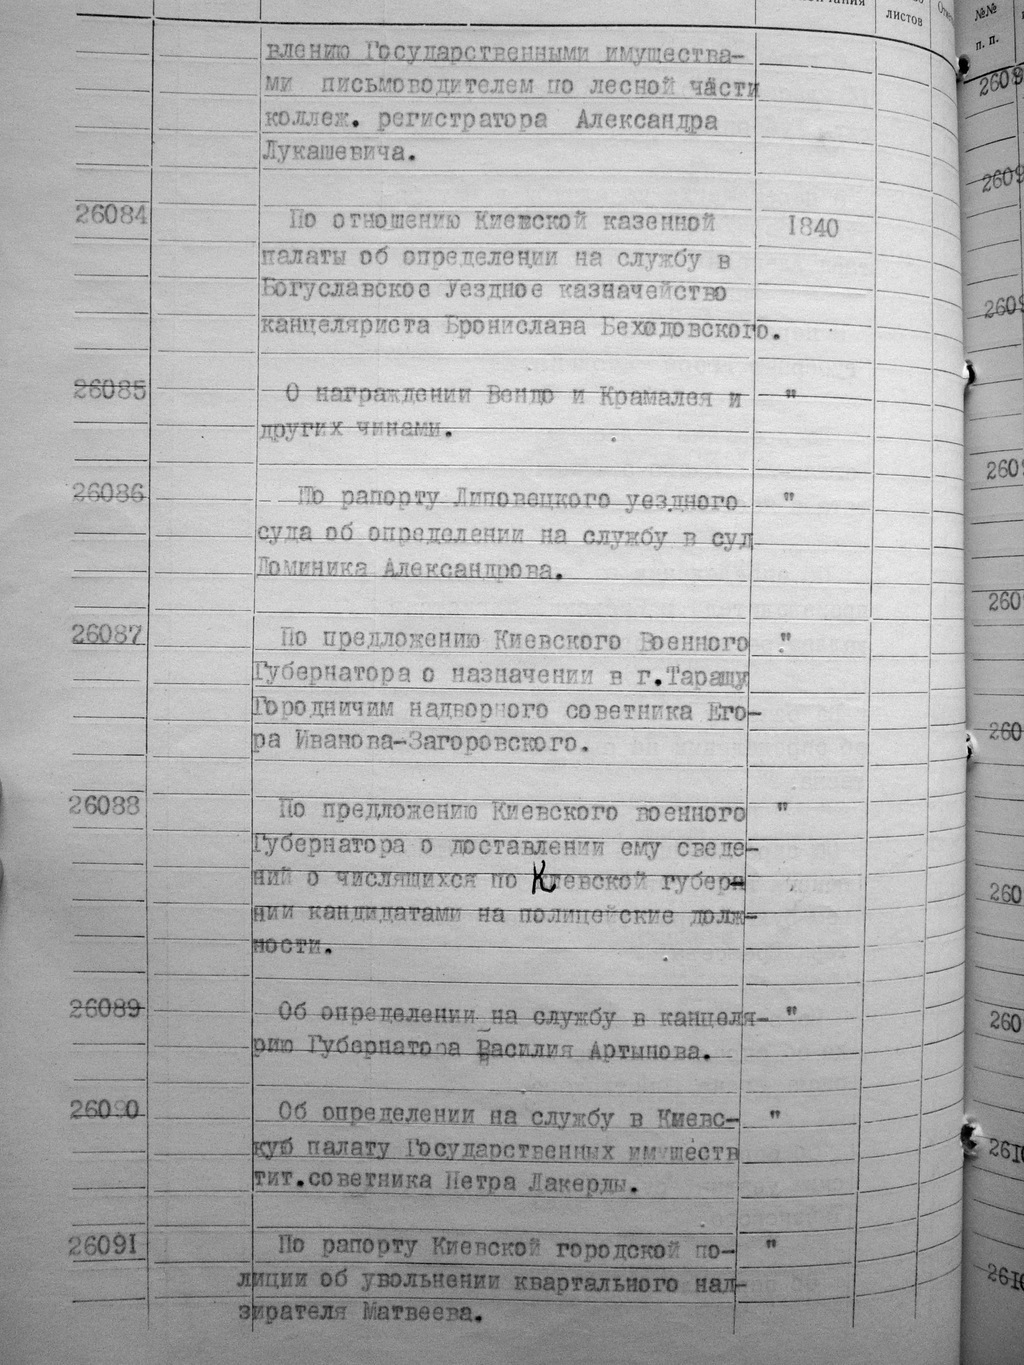 листов
№№
п. п.
влению Государственными имущества-
ми письмоводителем по лесной части
коллеж. регистратора Александра
Лукашевича.
26084 По отношению Киевской казенной 1840
палаты об определении на службу в
Богуславское Уездное казначейство
канцеляриста Бронислава Беходовского.
26085 О награждении Вендо и Крамалея и "
других чинами.
26086 По рапорту Липовецкого уездного "
суда об определении на службу в суд
Доминика Александрова.
26087 По предложению Киевского Военного "
Губернатора о назначении в г.Таращу
Городничим надворного советника Его-
ра Иванова-Загоровского.
26088 По предложению Киевского военного "
Губернатора о доставлении ему сведе-
ний о числящихся по Киевской губер-
нии кандидатами на полицейские долж-
ности.
26089 Об определении на службу в канцеля- "
рию Губернатора Василия Артынова.
26090 Об определении на службу в Киевс- "
кую палату Государственных имуществ
тит.советника Петра Лакерды.
26091 По рапорту Киевской городской по- "
лиции об увольнении квартального над-
зирателя Матвеева.